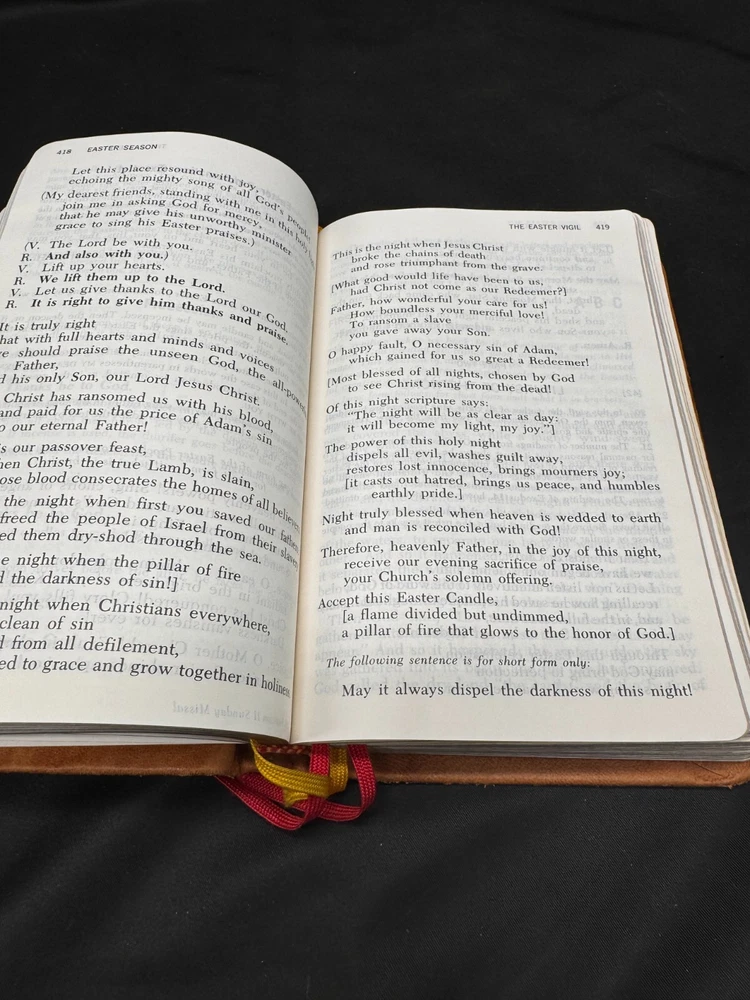 418 EASTER SEASON
Let this place resound with joy,
echoing the mighty song of all God's people!
(My dearest friends, standing with me in this holy
join me in asking God for mercy,
that he may give his unworthy minister
grace to sing his Easter praises.)
(V. The Lord be with you.
R. And also with you.)
V. Lift up your hearts.
R. We lift them up to the Lord.
V. Let us give thanks to the Lord our God.
R. It is right to give him thanks and praise.
It is truly right
that with full hearts and minds and voices
should praise the unseen God, the all-powerful
Father,
his only Son, our Lord Jesus Christ.
Christ has ransomed us with his blood,
and paid for us the price of Adam's sin
our eternal Father!
our passover feast,
Christ, the true Lamb, is slain,
blood consecrates the homes of all believers.
the night when first you saved our fathers
freed the people of Israel from their slavery
them dry-shod through the sea.
night when the pillar of fire
the darkness of sin!]
night when Christians everywhere,
clean of sin
from all defilement,
to grace and grow together in holiness.
THE EASTER VIGIL 419
This is the night when Jesus Christ
broke the chains of death
and rose triumphant from the grave.
[What good would life have been to us,
had Christ not come as our Redeemer?]
Father, how wonderful your care for us!
How boundless your merciful love!
To ransom a slave
you gave away your Son.
O happy fault, O necessary sin of Adam,
which gained for us so great a Redeemer!
[Most blessed of all nights, chosen by God
to see Christ rising from the dead!
Of this night scripture says:
"The night will be as clear as day:
it will become my light, my joy."]
The power of this holy night
dispels all evil, washes guilt away,
restores lost innocence, brings mourners joy;
[it casts out hatred, brings us peace, and humbles
earthly pride.]
Night truly blessed when heaven is wedded to earth
and man is reconciled with God!
Therefore, heavenly Father, in the joy of this night,
receive our evening sacrifice of praise,
your Church's solemn offering.
Accept this Easter Candle,
[a flame divided but undimmed,
a pillar of fire that glows to the honor of God.]
The following sentence is for short form only:
May it always dispel the darkness of this night!